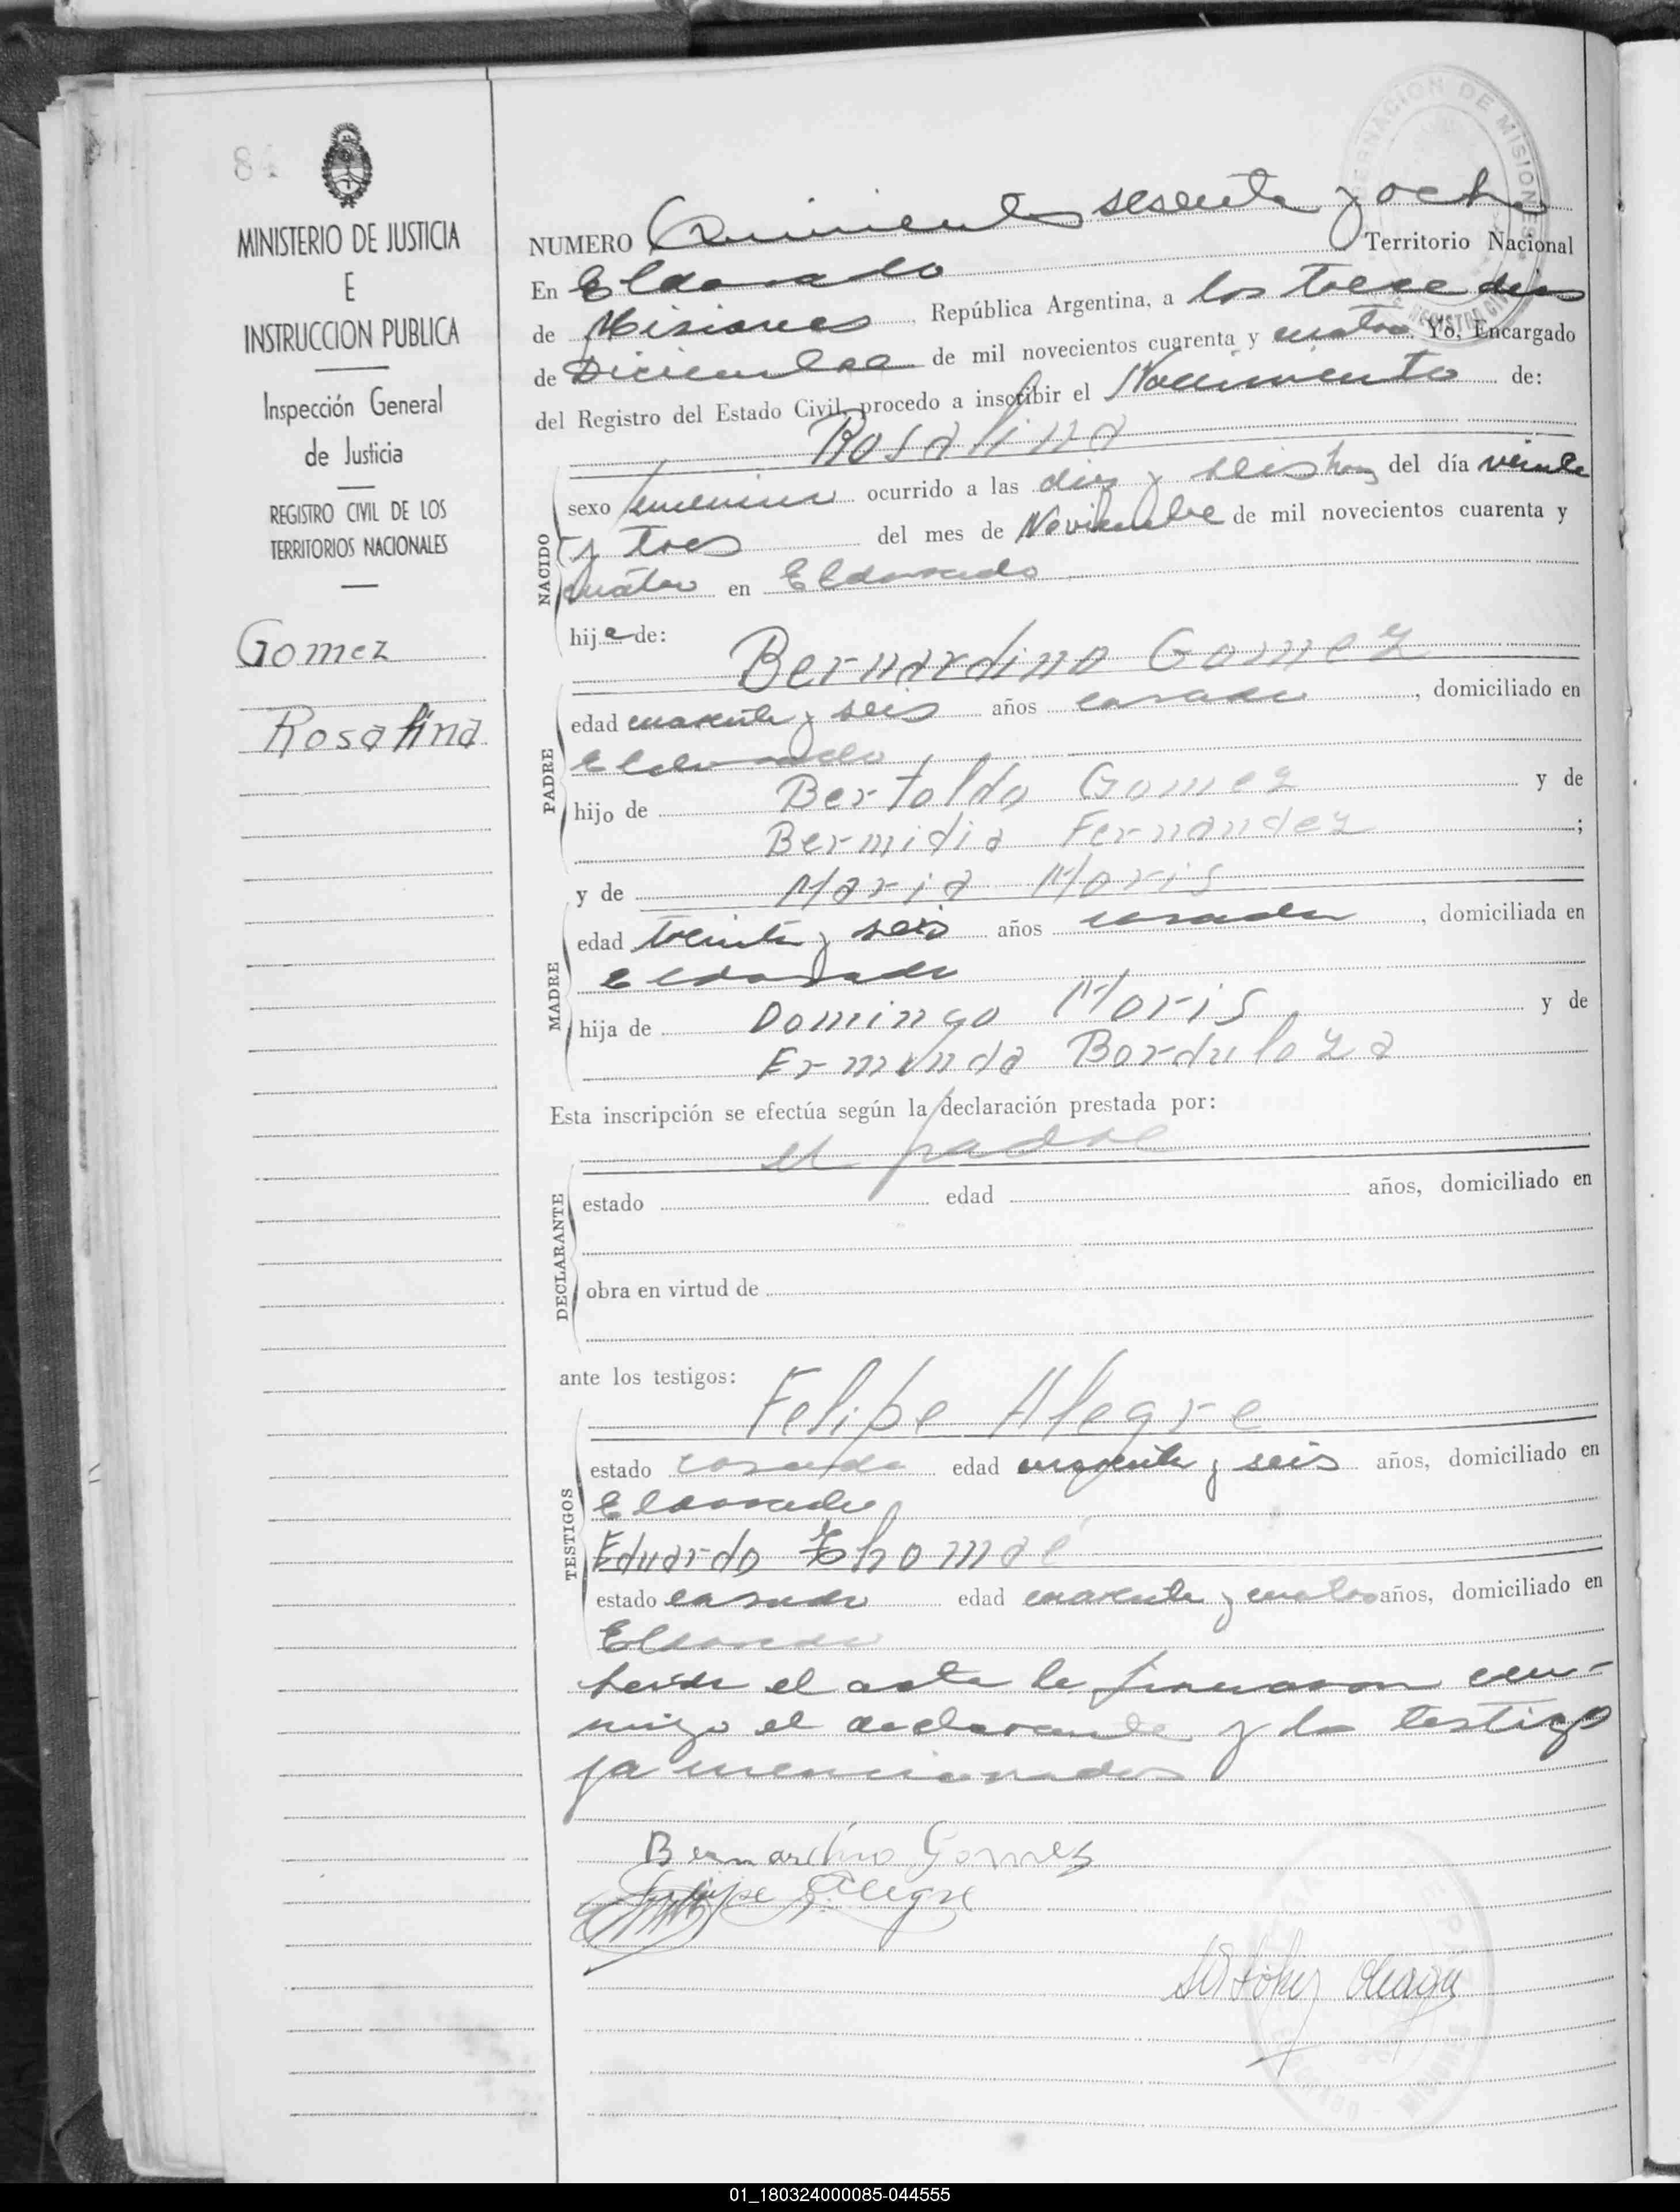 84
MINISTERIO DE JUSTICIA
E
INSTRUCCION PUBLICA
Inspección General
de Justicia
REGISTRO CIVIL DE LOS
TERRITORIOS NACIONALES
Gomez
Rosalina
GOBERNACION DE MISIONES
REGISTRO CIVIL
NUMERO Quinientos sesenta y ocho
En Eldorado Territorio Nacional
de Misiones, República Argentina, a los trece dias
de Diciembre de mil novecientos cuarenta y cuatro Yo, Encargado
del Registro del Estado Civil, procedo a inscribir el Nacimiento de:
Rosalina
NACIDO
sexo femenino ocurrido a las diez y seis horas del día veinte
y tres del mes de Noviembre de mil novecientos cuarenta y
cuatro en Eldorado
hija de:
Bernardino Gomez
PADRE
edad cuarenta y seis años casado, domiciliado en
Eldorado
hijo de Bertoldo Gomez y de
Bermidia Fernandez;
y de Maria Moris
MADRE
edad treinta y seis años casada, domiciliada en
Eldorado
hija de Domingo Moris y de
Ermunda Borduloza
Esta inscripción se efectúa según la declaración prestada por:
el padre
DECLARANTE
estado edad años, domiciliado en
obra en virtud de
ante los testigos:
Felipe Alegre
TESTIGOS
estado casado edad cuarenta y seis años, domiciliado en
Eldorado
Eduardo Thomae
estado casado edad cuarenta y cuatro años, domiciliado en
Eldorado
el acta la firmaron con-
migo el declarante y los testigos
ya mencionados
Bernardino Gomes
Felipe Alegre
01_180324000085-044555